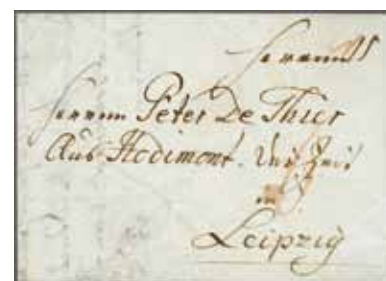 Herrn
Herrn Peter De Thier
Aus Hodimont.
in
Leipzig